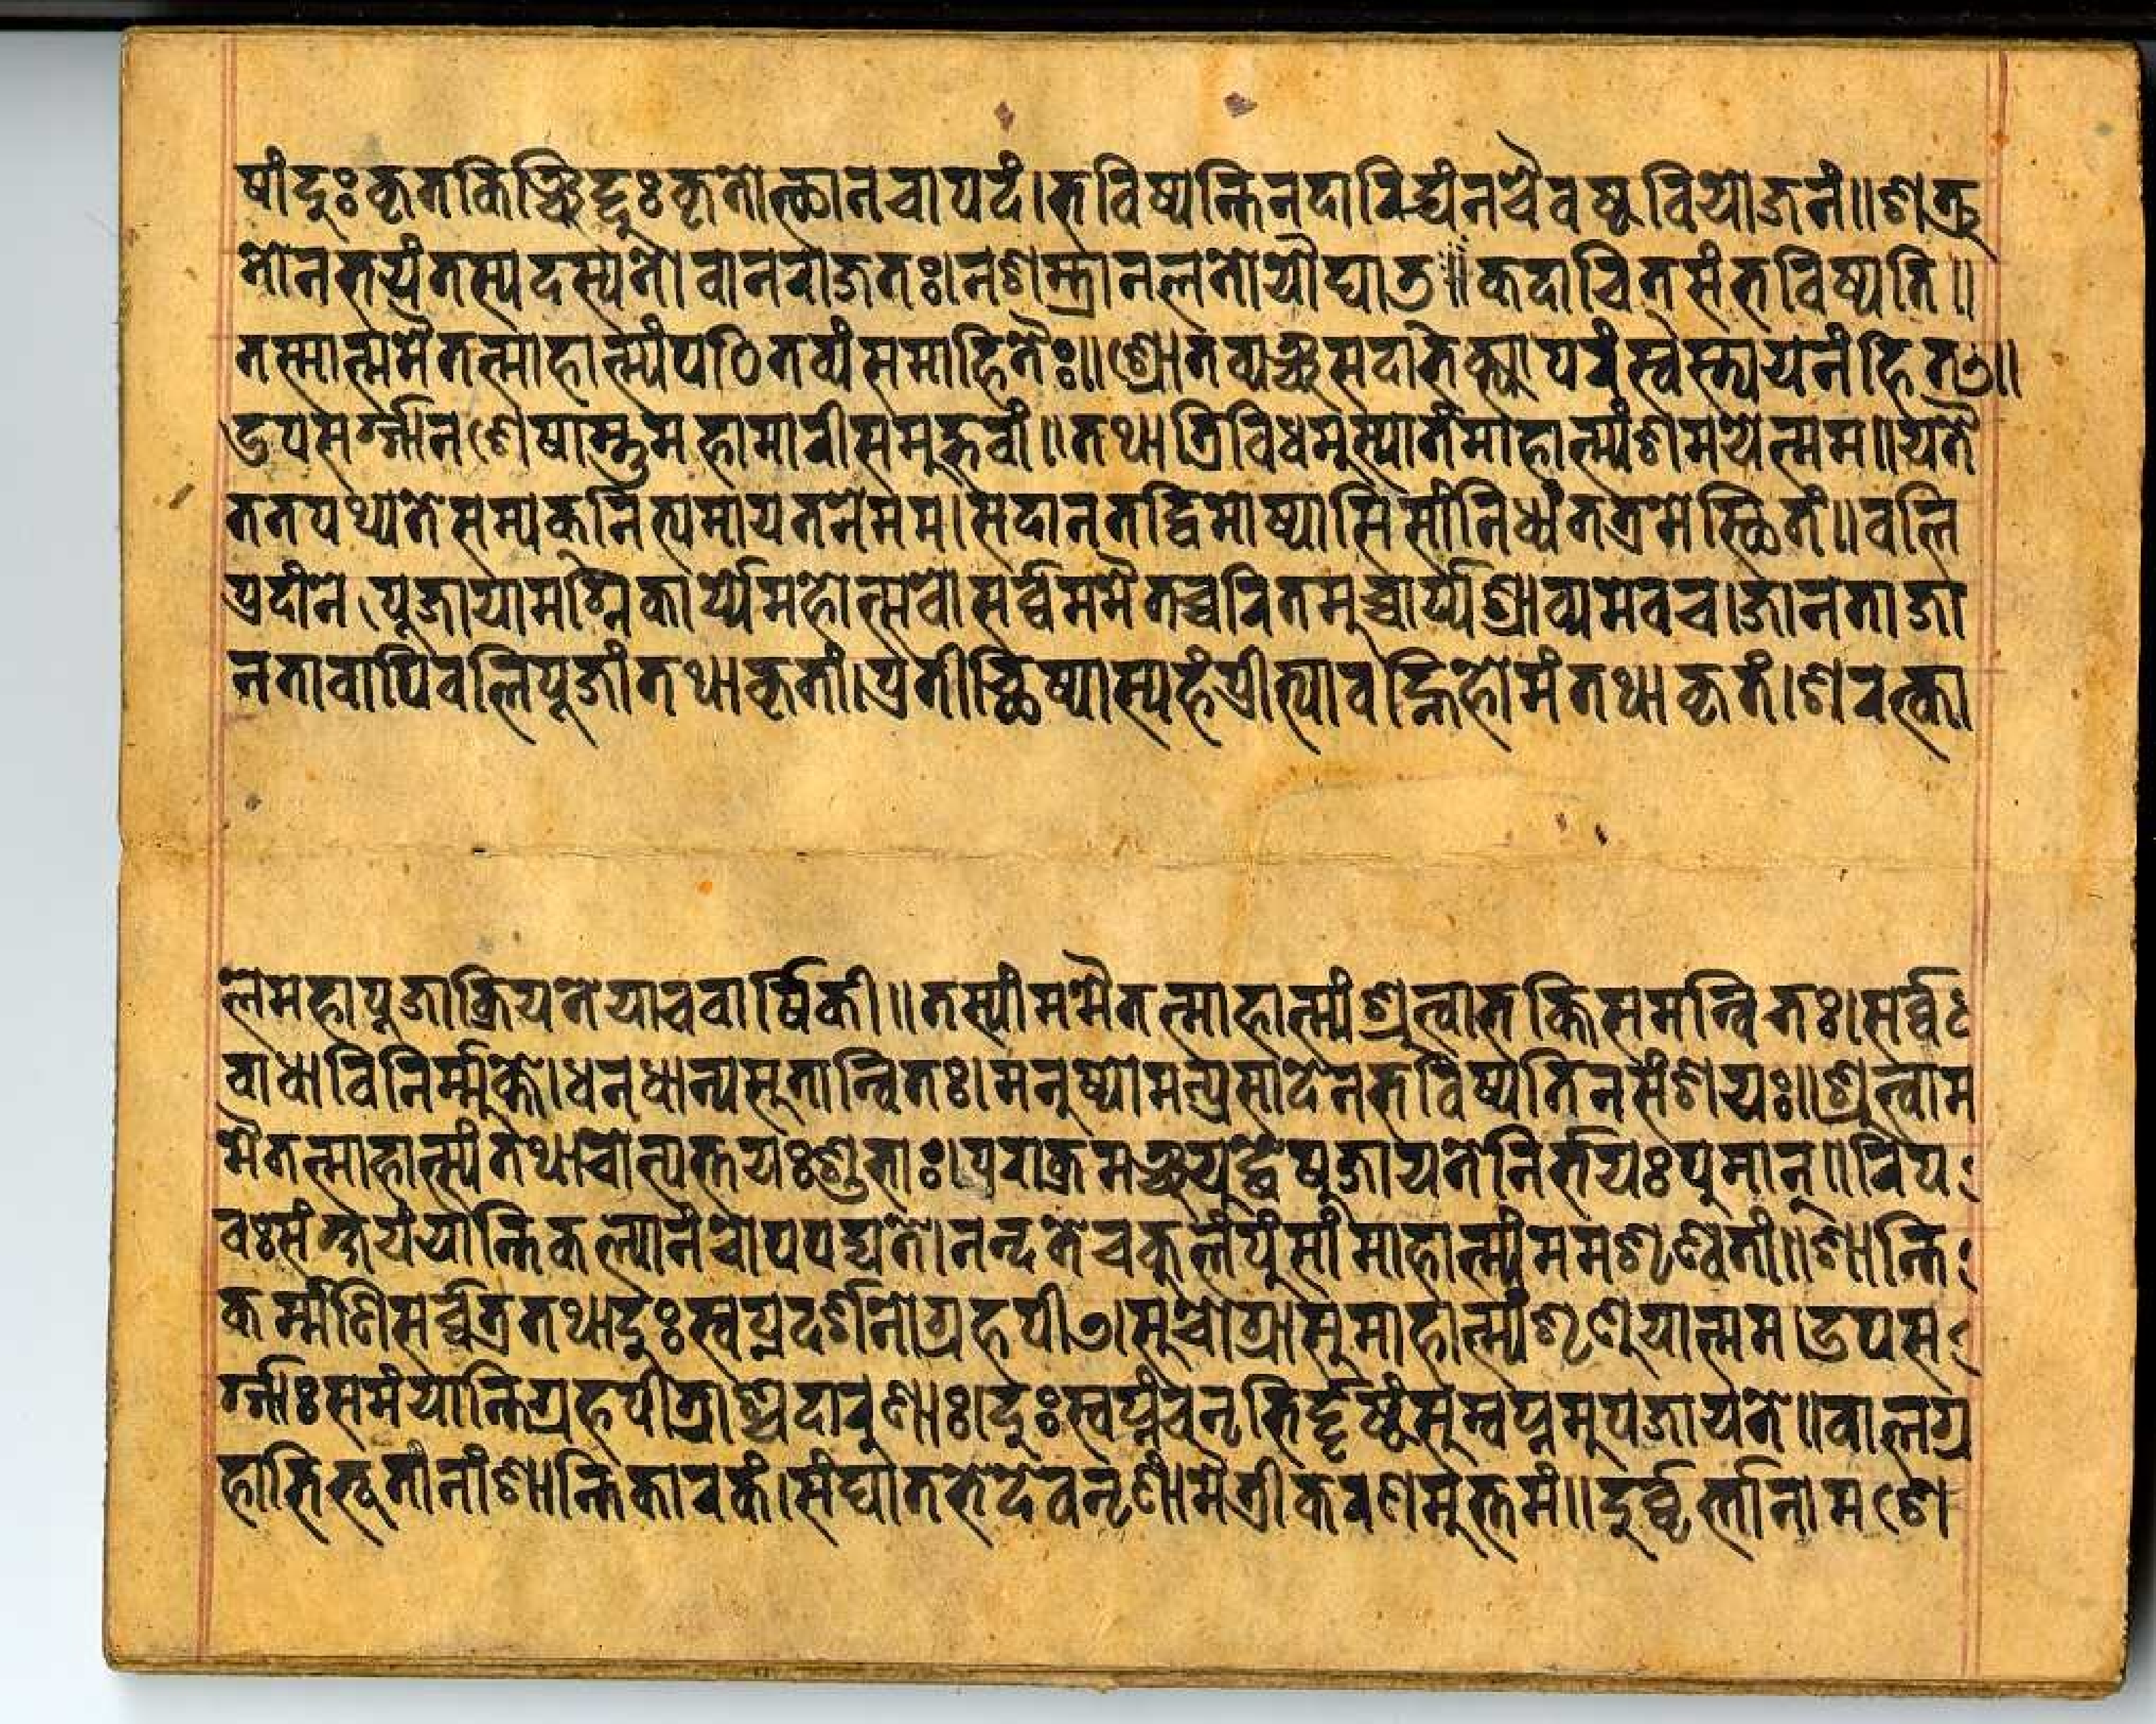 षांदुःकृतकिञ्चिद्दुःकृतोत्छानचापदं।भविष्यन्तिनदारिद्यंनचैवष्टवियोजनं॥शत्रु
तोनभयंतस्यदस्यतोवानराजतः।नशस्त्रानलतोयौघात॥कदाचितसंभविष्यति॥
तस्मात्ममैतत्माहात्म्यंपठितव्यंसमाहितैः॥श्रोतव्यञ्चसदाभक्त्यापरंस्वस्त्ययनंहितत्॥
उपसर्ग्गानशेषास्तुमहामारीसमुद्भवां॥तथात्रिविधमुत्पातंमाहात्म्यंशमयेत्मम॥यतै
ततपथ्यतेसम्यकनित्यमायतनेमम।सदानतद्विमोष्यामिसांनिध्यंतत्रमेस्छितं॥वलि
प्रदाने पूजायामग्निकार्य्येमहोत्सवो।सर्व्वममैतच्चरितमुच्चार्य्यश्राव्यमेवच।जानताजा
नतावापिवलिपूजांतथाकृतां।प्रतीच्छिष्याम्यहंप्रीत्यावह्निहोमंतथाकृतं।शरत्का
लेमहापूजाक्रियतेयाचवार्षिकी॥तस्यांममैतत्माहात्म्यंश्रुत्वाभक्तिसमन्वितः।सर्व्व
वाधाविनिर्म्मुक्तो।धनधान्यसुतान्वितः।मनुष्योमत्प्रसादेनभविष्यतिनसंशयः॥श्रुत्वाम
मैतत्माहात्म्यंतथाचोत्पत्तयःशुभाः।पराक्रमञ्चयुद्धेषुजायतेनिर्भयःपुमान्॥रिप
वःसंक्षयंयान्तिकल्यानंचोपपद्यते।नन्दतेचकुलंपुंसांमाहात्म्यंममशृण्वतां॥शान्ति
कर्म्मणिसर्व्वत्रतथादुःस्वप्नदर्शने।ग्रहपीडासुचोग्रासुमाहात्म्यंशृणुयात्मम।उपस
र्ग्गाःसमंयान्तिग्रहपीडाश्चदारुणाः।दुःस्वप्नंचनृभिर्द्दृष्टंसुस्वप्नमुपजायते॥वालग्र
हाभिभूतानांशान्तिकारकं।संघातभेदेवनृणांमैत्रीकरणमुत्तमं॥दुर्व्वृत्तानामशे